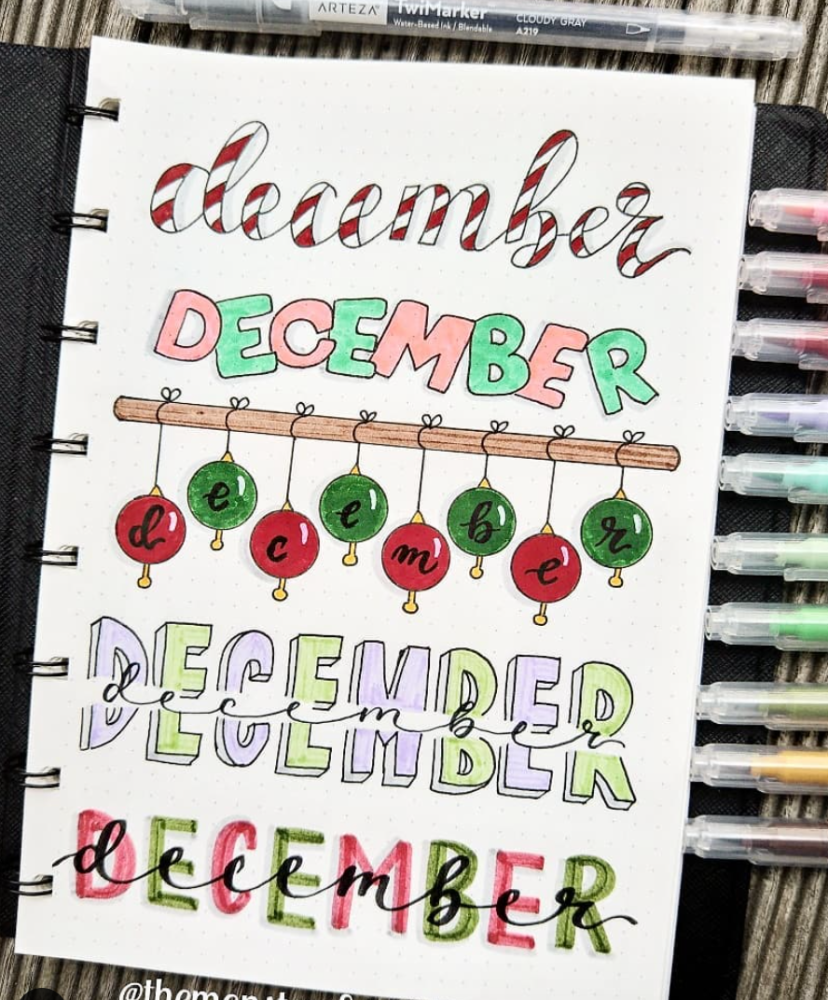 ARTEZA TwiMarker CLOUDY GRAY
Water-Based Ink / Blendable A219
december
DECEMBER
december
DECEMBER
december
DECEMBER
december